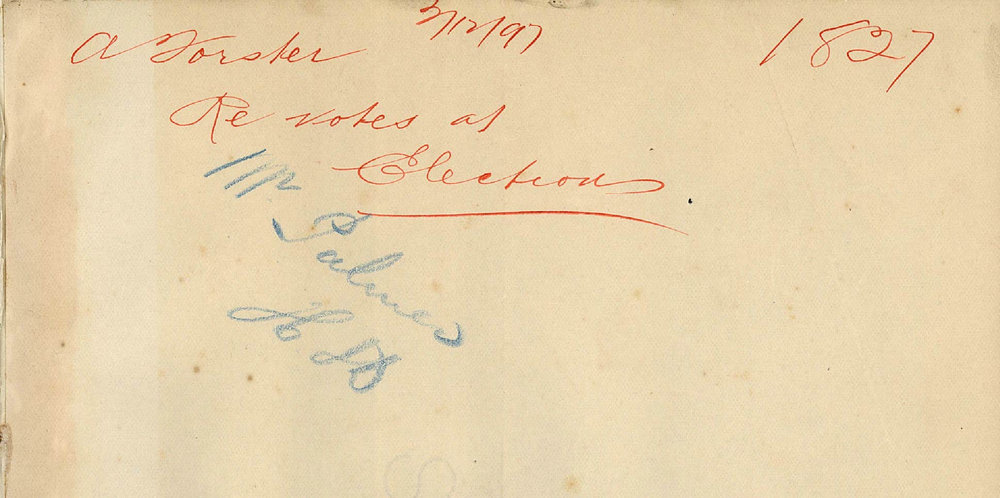 A Forster 3/12/97 1827
Re votes at
Elections
Mr
Palmer